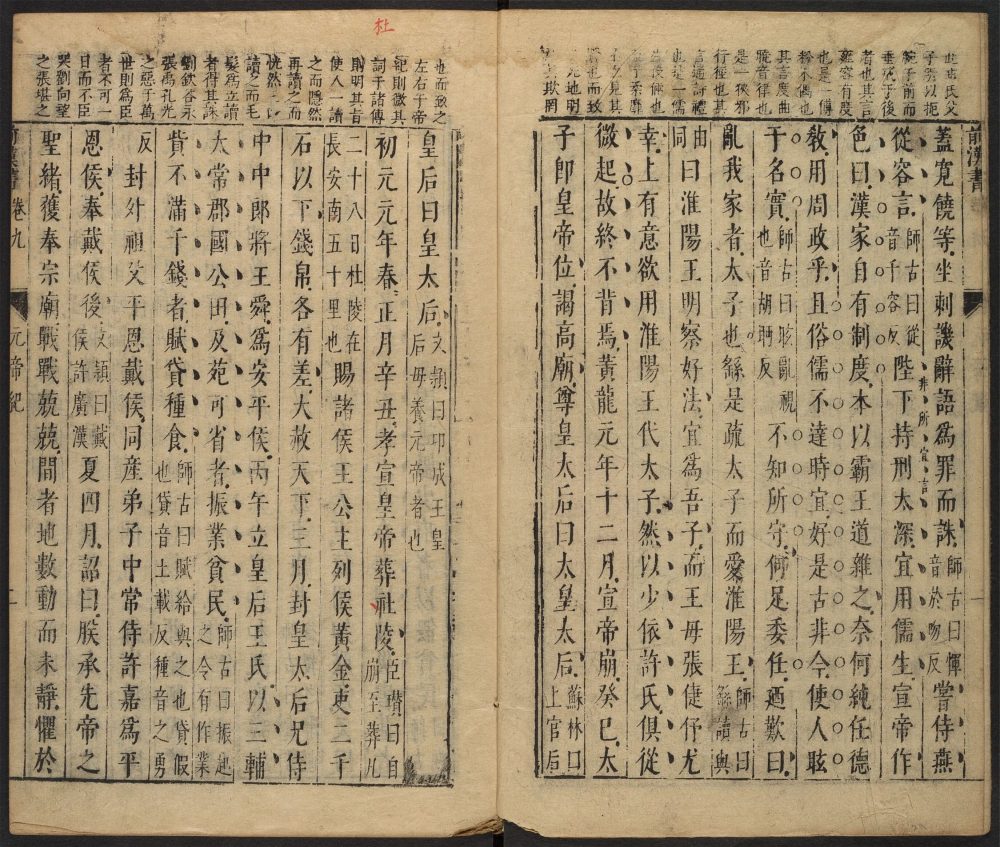 前漢書
蓋寬饒等坐刺譏辭語爲罪而誅師古曰惲音於吻反嘗侍燕
從容言師古曰從音千容反陛下持刑太深宜用儒生宣帝作
非所宜言
色曰漢家自有制度本以霸王道雜之奈何純任德
敎用周政乎且俗儒不達時宜好是古非今使人眩
于名實師古曰眩亂視也音胡眄反不知所守何足委任廼歎曰
亂我家者太子也繇是疏太子而愛淮陽王師古曰繇讀與由同
曰淮陽王明察好法宜爲吾子而王母張倢伃尤
幸上有意欲用淮陽王代太子然以少依許氏俱從
微起故終不背焉黃龍元年十二月宣帝崩癸巳太
子卽皇帝位謁高廟尊皇太后曰太皇太后蘇林曰上官后
皇后曰皇太后文頴曰邛成王皇后母養元帝者也
初元元年春正月辛丑孝宣皇帝葬杜陵臣瓚曰自崩至葬凡
二十八日杜陵在長安南五十里也賜諸侯王公主列侯黃金吏二千
石以下錢帛各有差大赦天下三月封皇太后兄侍
中中郎將王舜爲安平侯丙午立皇后王氏以三輔
太常郡國公田及苑可省者振業貧民師古曰振起之令有作業
貲不滿千錢者賦貸種食師古曰賦給與之也貸假也貸音土載反種音之勇
反封外祖父平恩戴侯同産弟子中常侍許嘉爲平
恩侯奉戴侯後文頴曰戴侯許廣漢夏四月詔曰朕承先帝之
聖緒獲奉宗廟戰戰兢兢間者地數動而未靜懼於
卷九
元帝紀
杜
也而致之
左右于帝
紀則微其
詞于諸傳
則明其音
使人一讀
之而隱然
再讀之而
恍然三
讀之而毛
髮爲立讀
者得其誅
劉歆谷永
張禹孔光
之惡于萬
世則爲臣
者不可一
日而不臣
哭劉向望
之張堪之